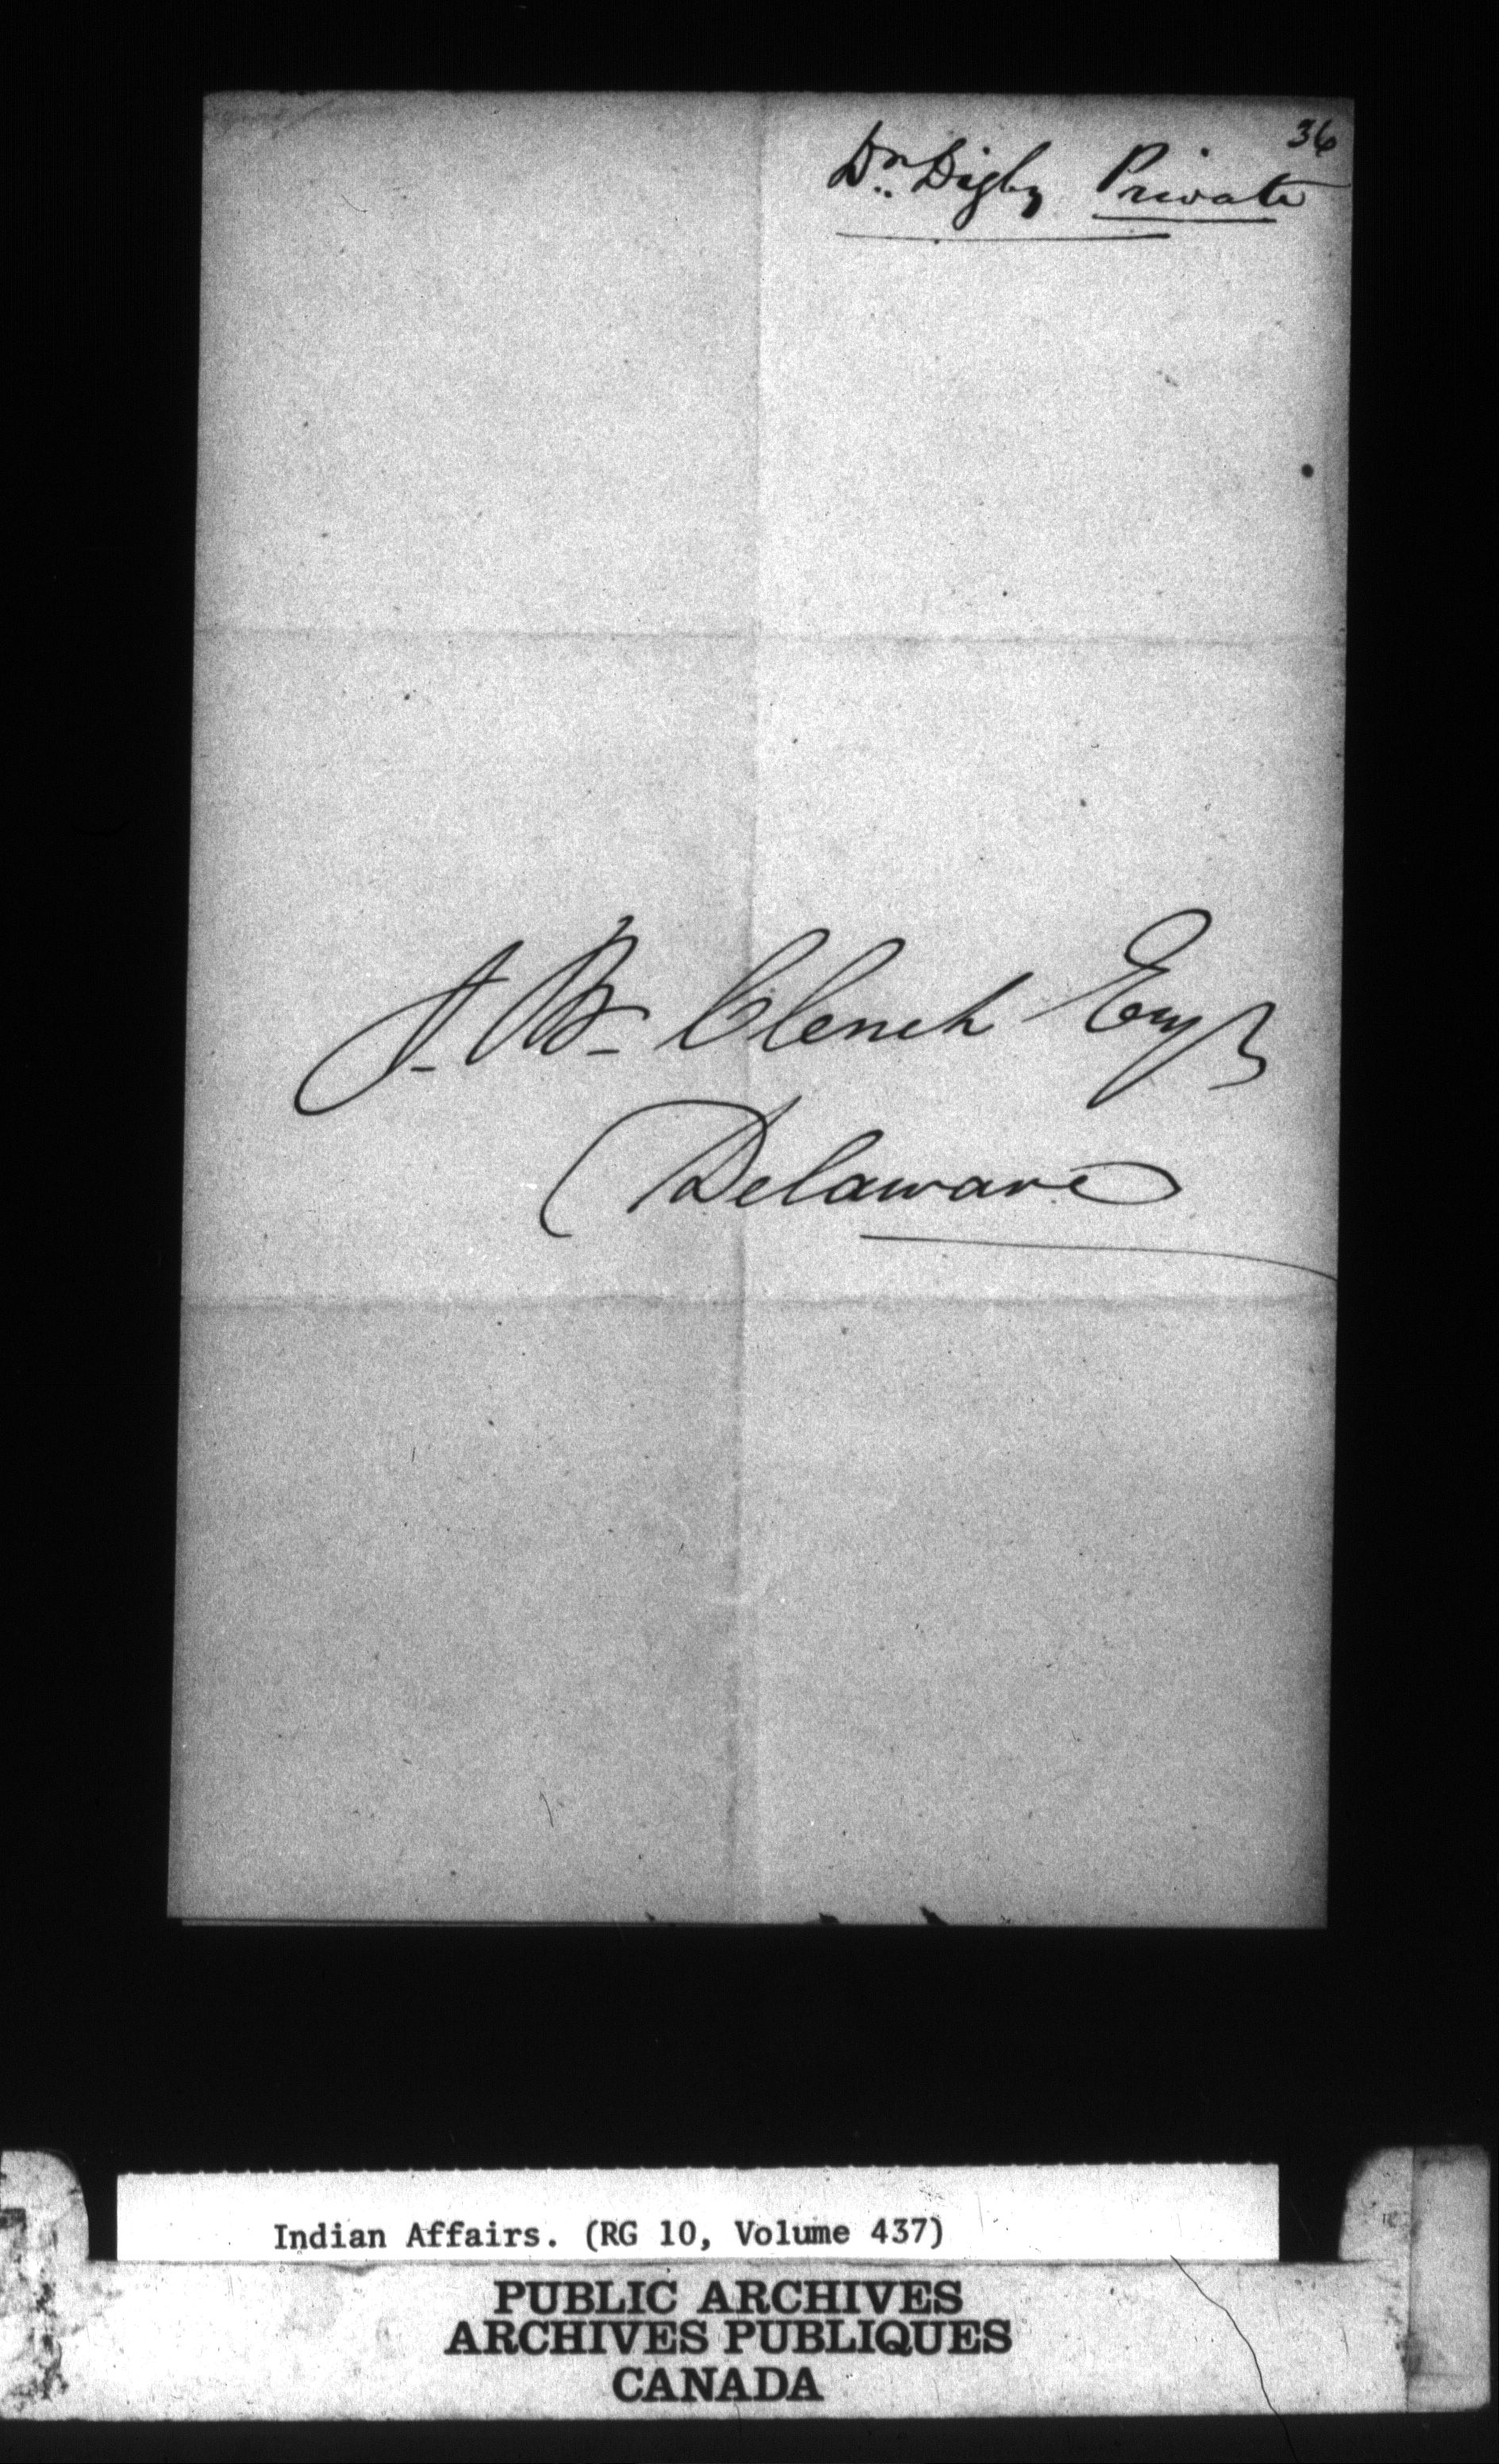 36
Dr. Digby Private
J. B. Clench Esqr
Delaware
Indian Affairs. (RG 10, Volume 437)
PUBLIC ARCHIVES
ARCHIVES PUBLIQUES
CANADA